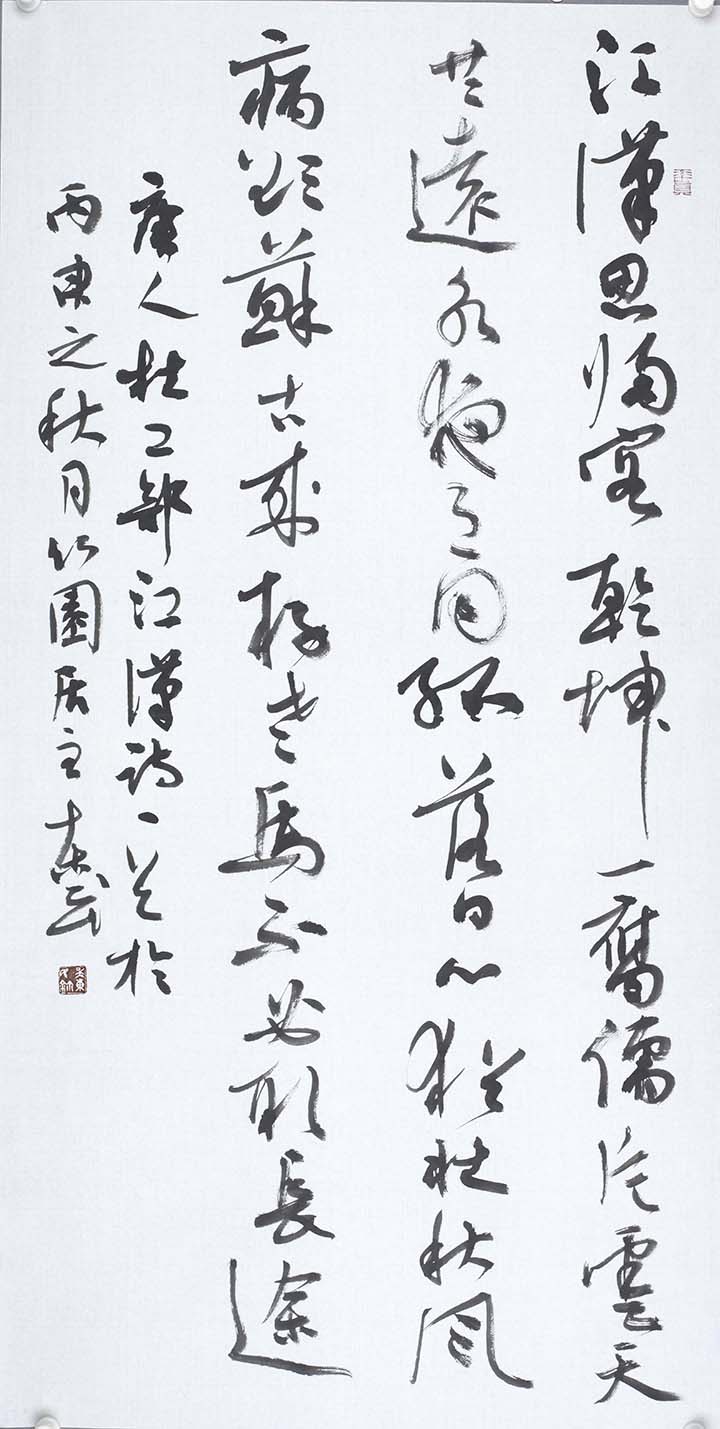 江漢思歸客乾坤一腐儒片雲天
共遠永夜月同孤落日心猶壯秋風
病欲蘇古來存老馬不必取長途
唐人杜工部江漢詩一首於
丙申之秋月竹園居主